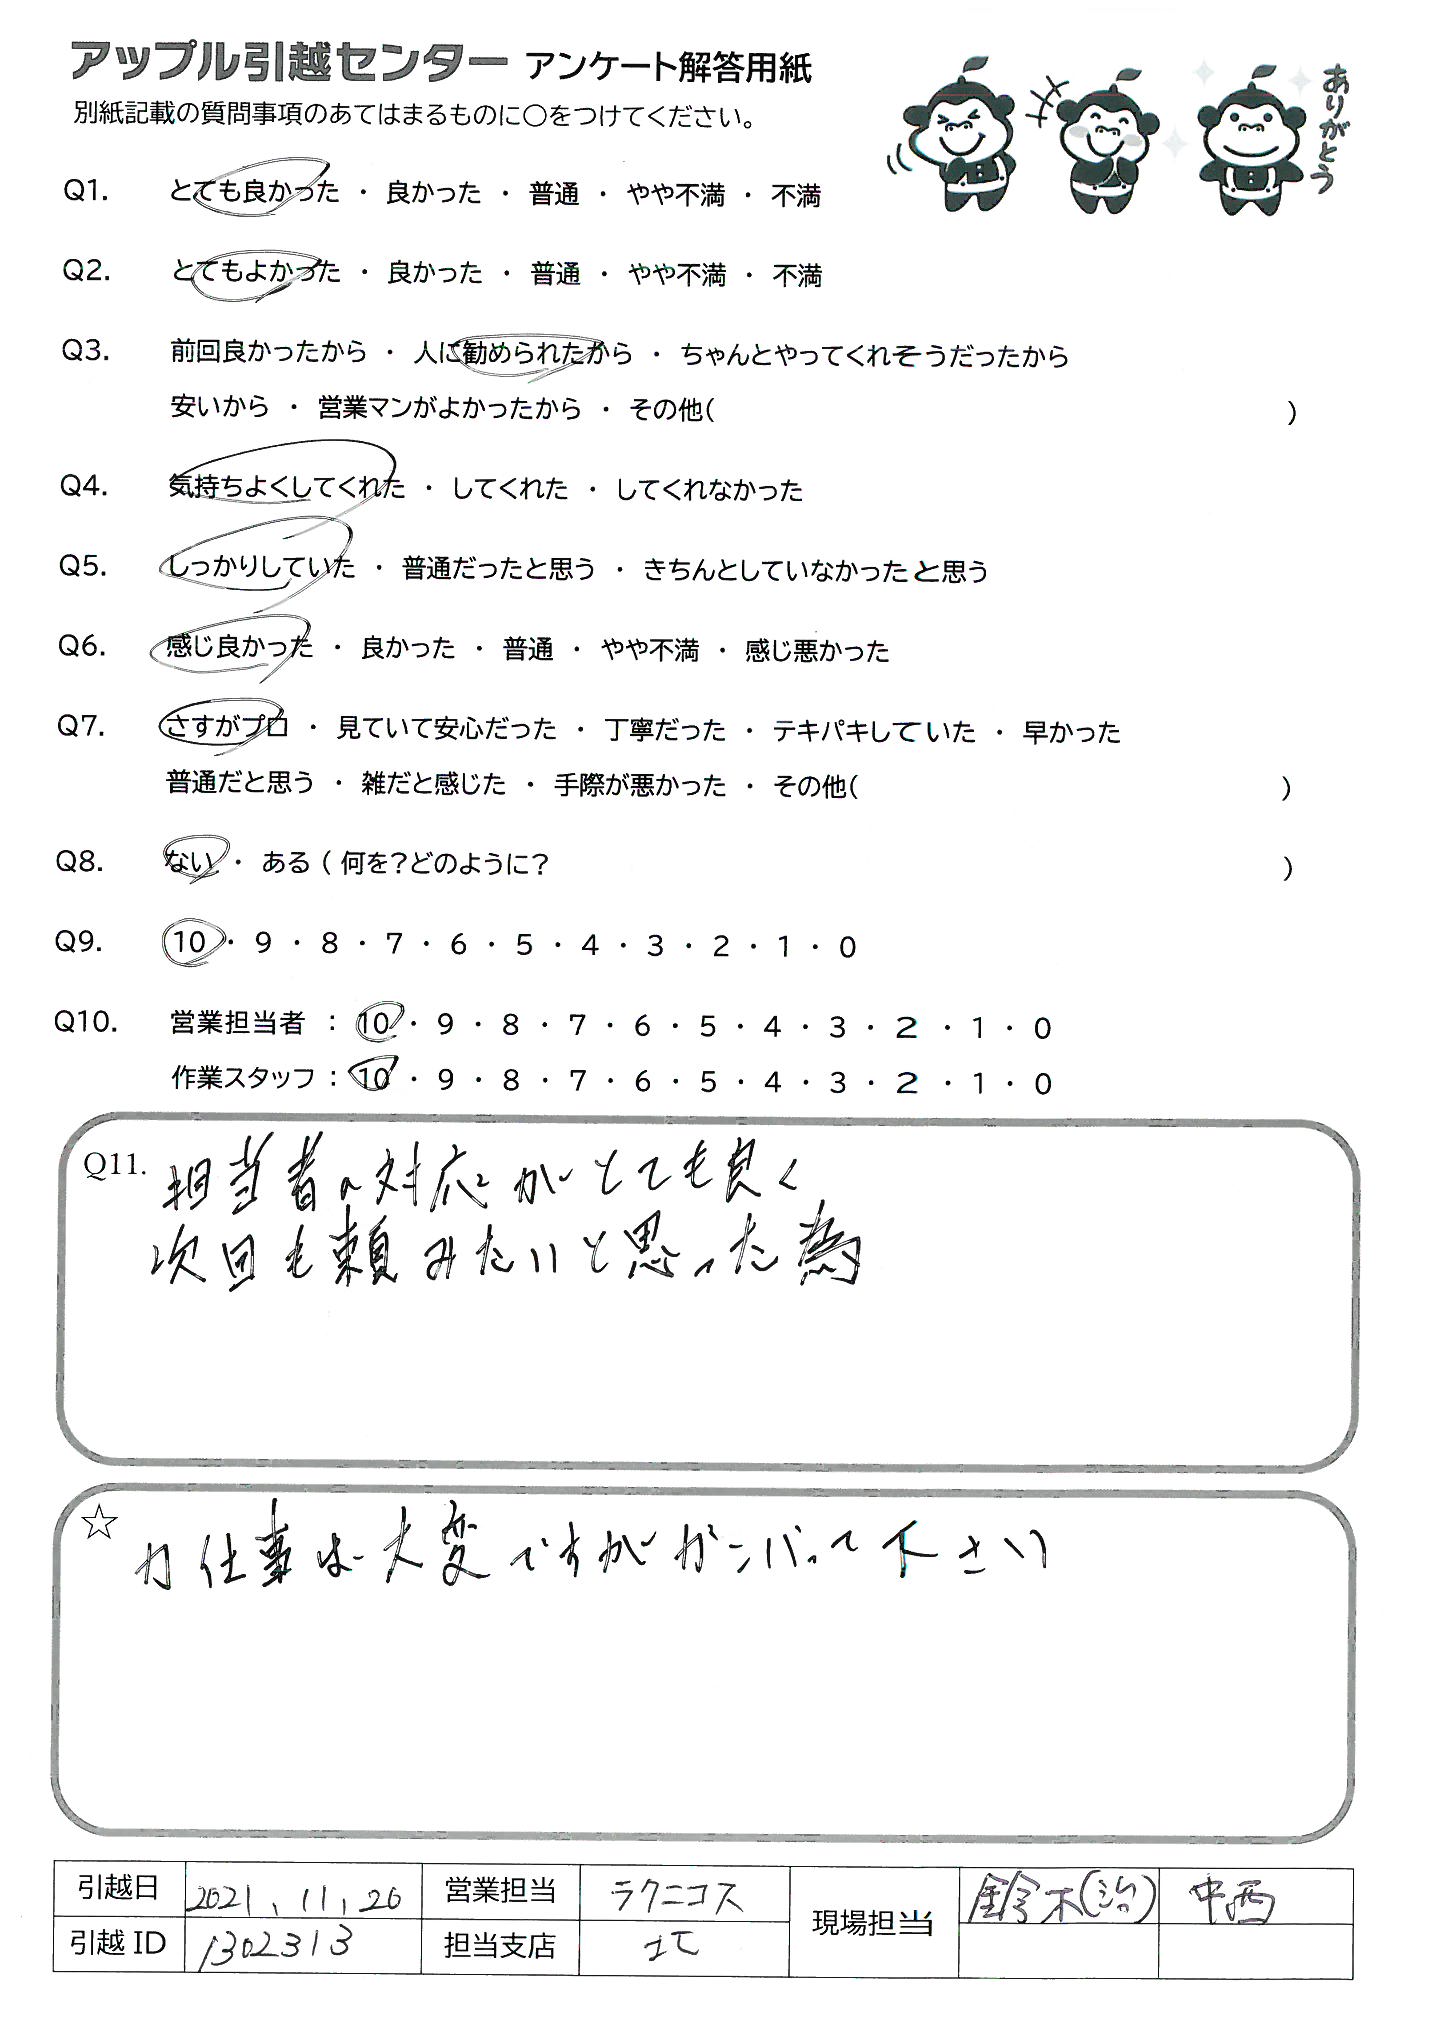 アップル引越センター アンケート解答用紙
別紙記載の質問事項のあてはまるものに〇をつけてください。
ありがとう
Q1. とても良かった ・ 良かった ・ 普通 ・ やや不満 ・ 不満
Q2. とてもよかった ・ 良かった ・ 普通 ・ やや不満 ・ 不満
Q3. 前回良かったから ・ 人に勧められたから ・ ちゃんとやってくれそうだったから
安いから ・ 営業マンがよかったから ・ その他( )
Q4. 気持ちよくしてくれた ・ してくれた ・ してくれなかった
Q5. しっかりしていた ・ 普通だったと思う ・ きちんとしていなかったと思う
Q6. 感じ良かった ・ 良かった ・ 普通 ・ やや不満 ・ 感じ悪かった
Q7. さすがプロ ・ 見ていて安心だった ・ 丁寧だった ・ テキパキしていた ・ 早かった
普通だと思う ・ 雑だと感じた ・ 手際が悪かった ・ その他( )
Q8. ない ・ ある ( 何を?どのように? )
Q9. 10 ・ 9 ・ 8 ・ 7 ・ 6 ・ 5 ・ 4 ・ 3 ・ 2 ・ 1 ・ 0
Q10. 営業担当者 : 10 ・ 9 ・ 8 ・ 7 ・ 6 ・ 5 ・ 4 ・ 3 ・ 2 ・ 1 ・ 0
作業スタッフ : 10 ・ 9 ・ 8 ・ 7 ・ 6 ・ 5 ・ 4 ・ 3 ・ 2 ・ 1 ・ 0
Q11. 担当者の対応がとても良く
次回も頼みたいと思った為
☆ 力仕事は大変ですがガンバって下さい
引越日 2021.11.20 営業担当 ラクニコス 現場担当 鈴木(治) 中西
引越ID 1302313 担当支店 北